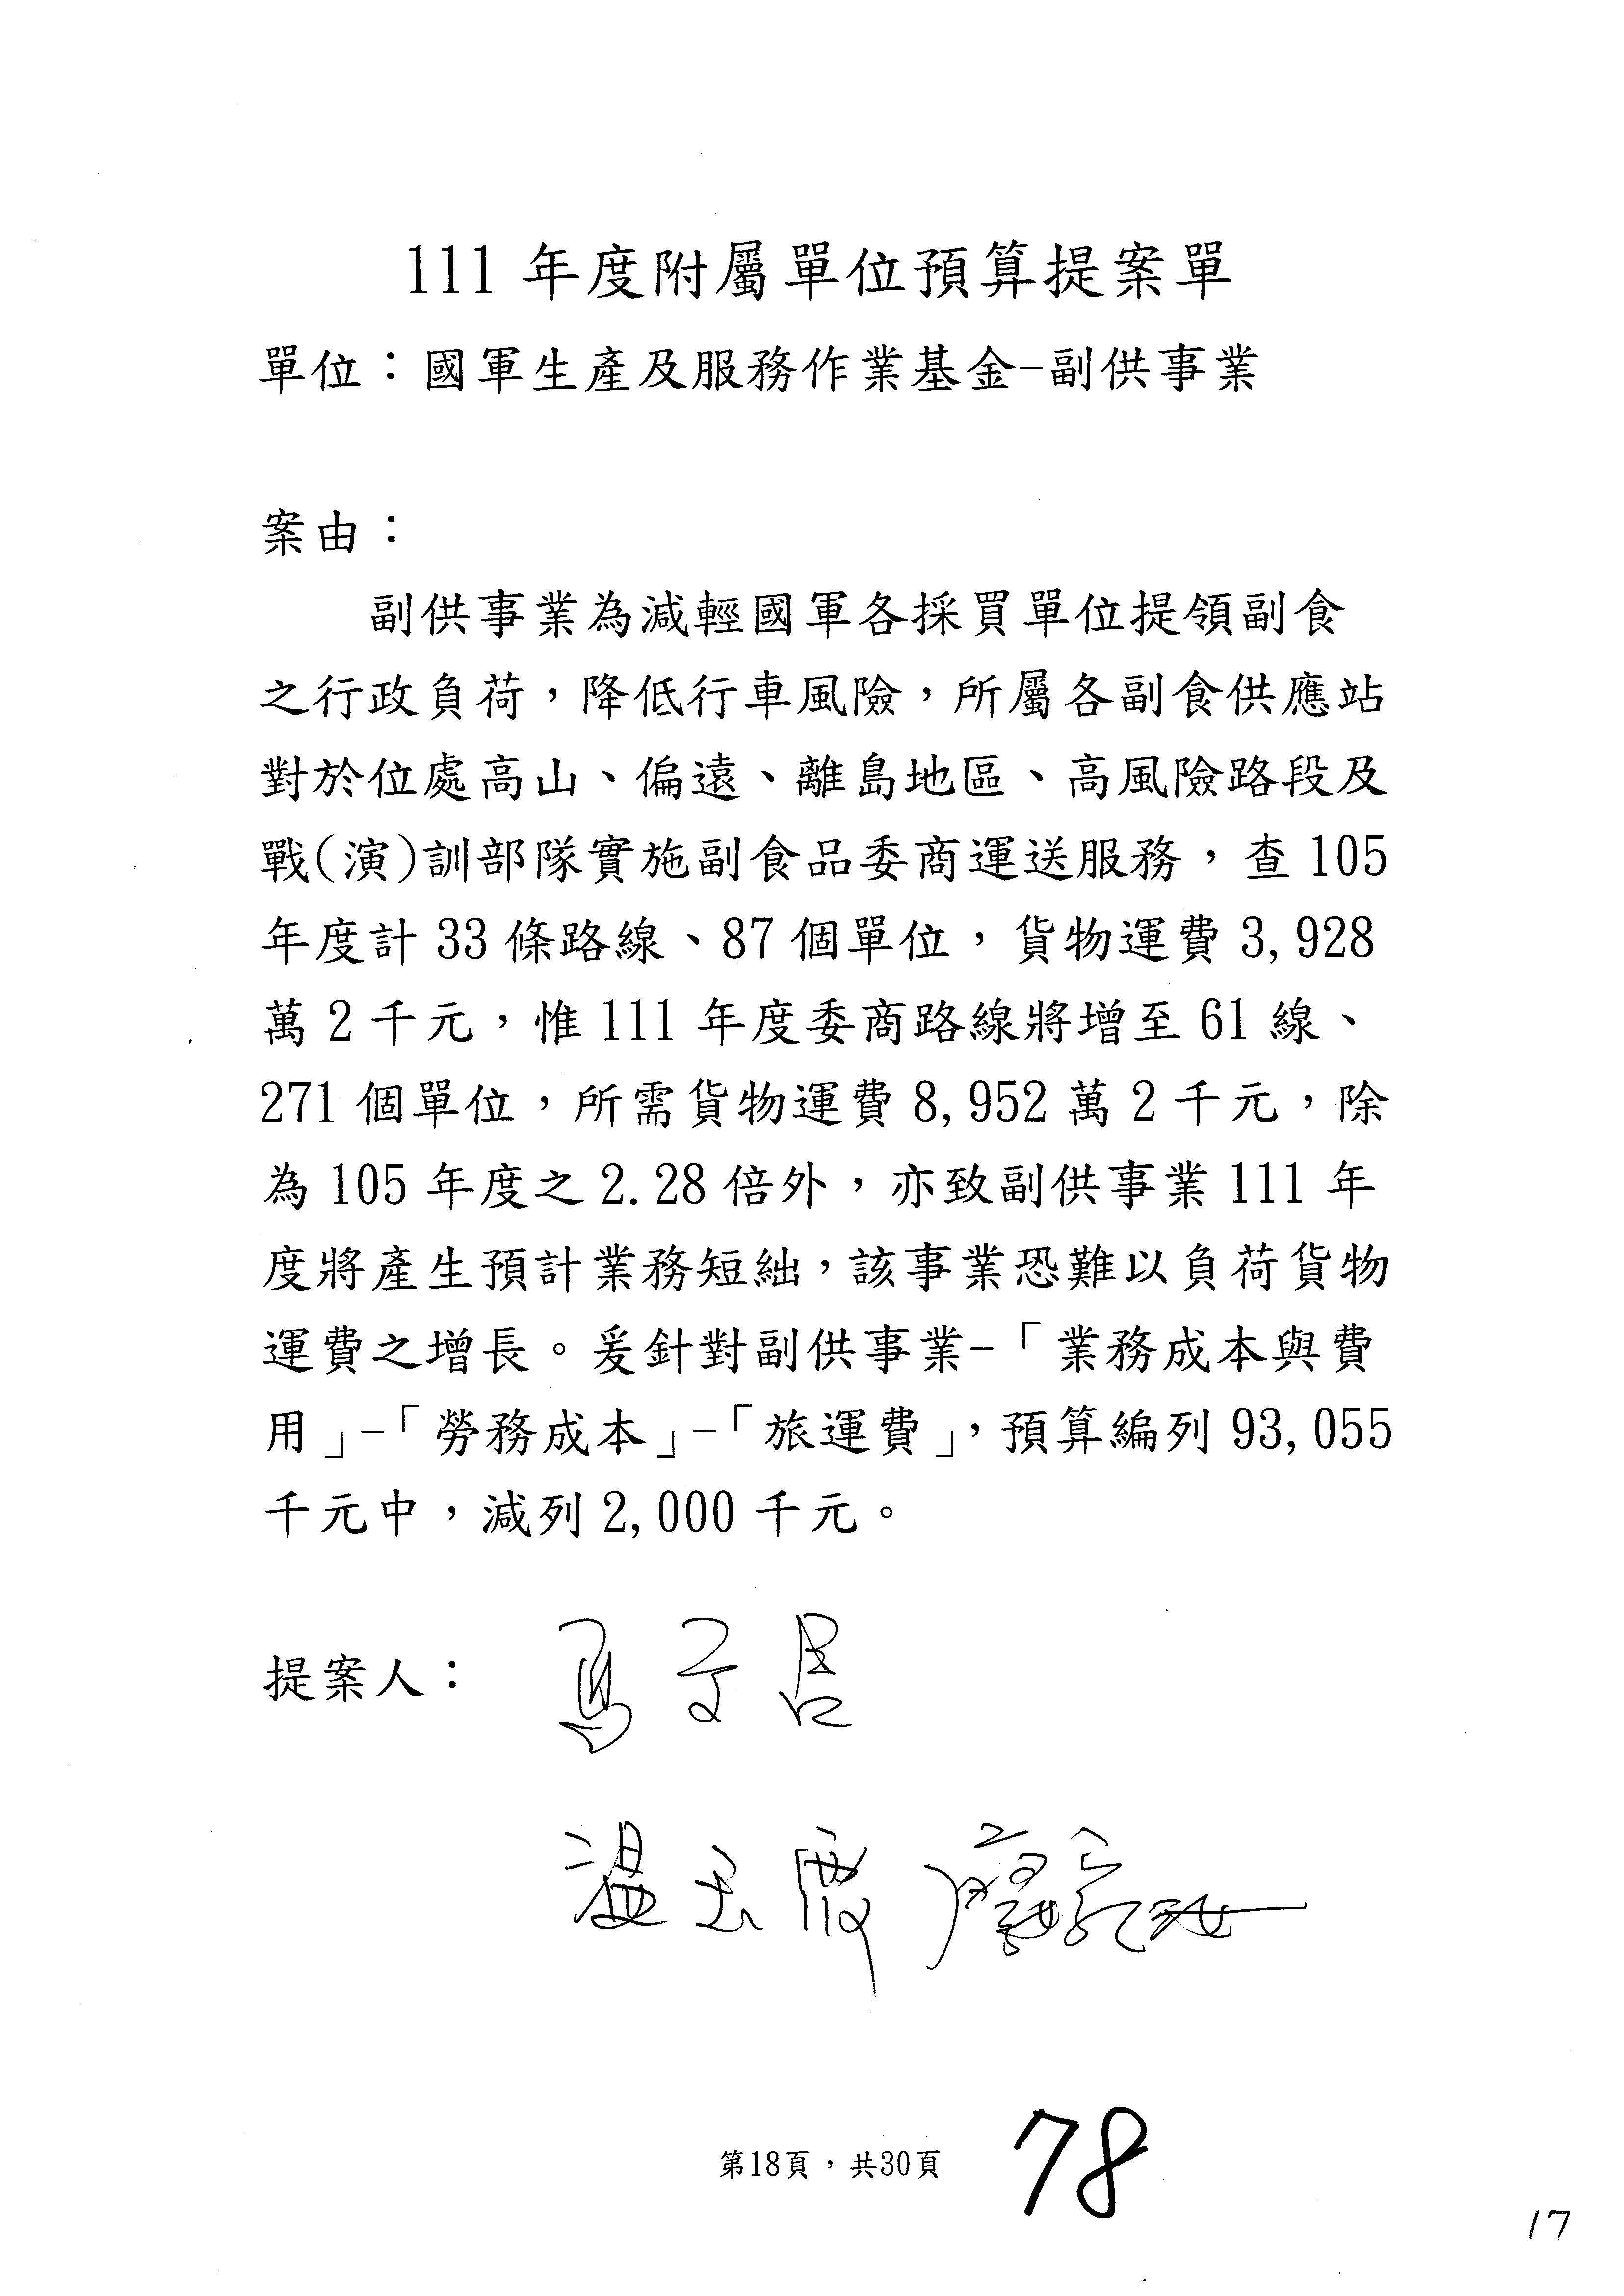 111 年度附屬單位預算提案單
單位：國軍生產及服務作業基金-副供事業
案由：
副供事業為減輕國軍各採買單位提領副食
之行政負荷，降低行車風險，所屬各副食供應站
對於位處高山、偏遠、離島地區、高風險路段及
戰(演)訓部隊實施副食品委商運送服務，查 105
年度計 33 條路線、87 個單位，貨物運費 3,928
萬 2 千元，惟 111 年度委商路線將增至 61 線、
271 個單位，所需貨物運費 8,952 萬 2 千元，除
為 105 年度之 2.28 倍外，亦致副供事業 111 年
度將產生預計業務短絀，該事業恐難以負荷貨物
運費之增長。爰針對副供事業-「業務成本與費
用」-「勞務成本」-「旅運費」，預算編列 93,055
千元中，減列 2,000 千元。
提案人：
馬文君
温玉霞
第18頁，共30頁
78
17